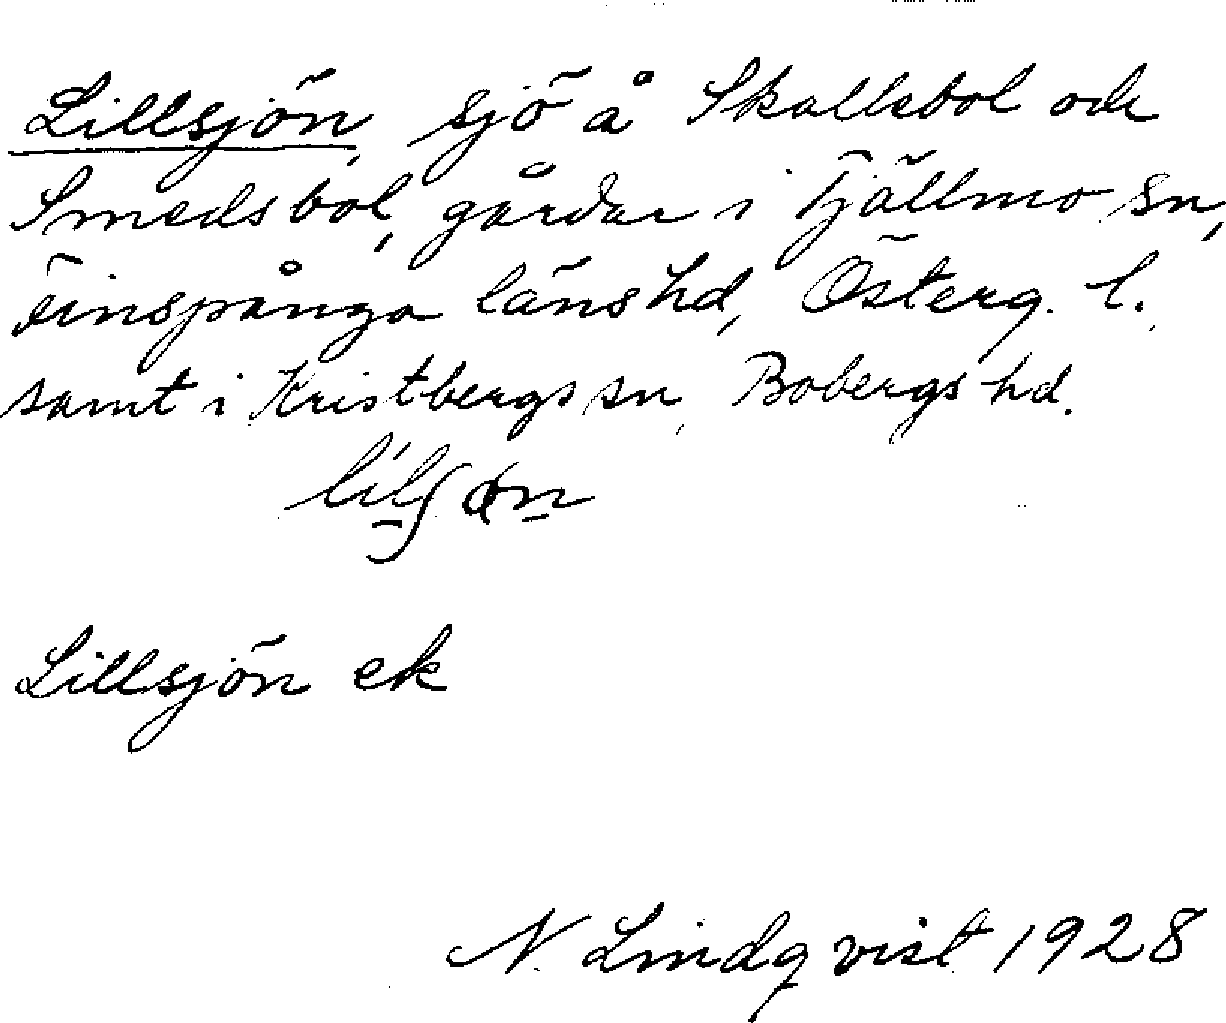 Lillsjön, sjö å Skallebol och
Smedsbol, gårdar i Tjällmo sn,
Finspånga läns hd, Österg. l.
samt i Kristbergs sn, Bobergs hd.
Lillsjön ek
N. Lindqvist 1928